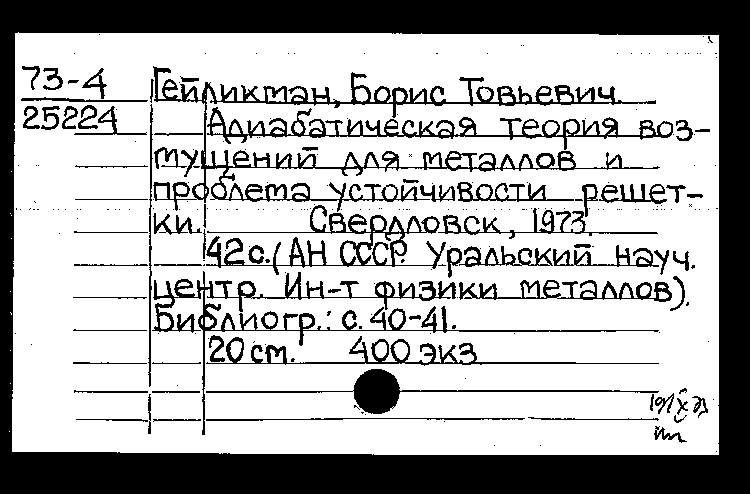 73-4 Гейликман, Борис Товьевич.
25224 Адиабатическая теория воз-
мущений для металлов и
проблема устойчивости решет-
ки. Свердловск, 1973.
42с. (АН СССР. Уральский науч.
центр. Ин-т физики металлов).
Библиогр.: с. 40-41.
20 см. 400 экз